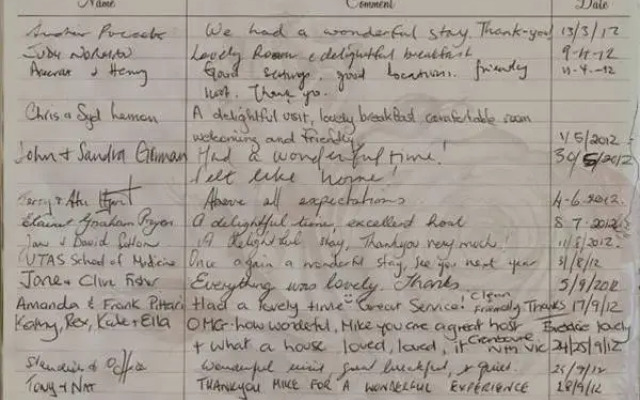 Name Comment Date
We had a wonderful stay. Thank-you! 13/3/12
Judy Norman Lovely Room & delightful breakfast 9-4-12
& Henry Good settings, good locations. friendly 11-4-12
host. Thank you.
Chris & Syd A delightful visit, lovely breakfast comfortable room
welcoming and friendly 1/5/2012
John & Sandra Had a wonderful time! 30/5/2012
Felt like home!
Above all expectations 4-6-2012.
Elaine Graham A delightful time, excellent host 8 7 2012
Jan & David A delightful stay, Thankyou very much! 11/8/2012.
UTAS School of Medicine Once again a wonderful stay, see you next year 31/8/12
Jane & Clive Everything was lovely. Thanks 5/9/2012
Amanda & Frank Had a lovely time Great Service! Clean Friendly Thanks 17/9/12
Rex, Kate & Ella OMG-how wonderful, Mike you are a great host lovely
+ what a house loved, loved, it Cranbourne Nth Vic 24/25/9/12
Wonderful visit, great breakfast, & quiet.
Tony & Nat THANKYOU MIKE FOR A WONDERFUL EXPERIENCE 28/9/12